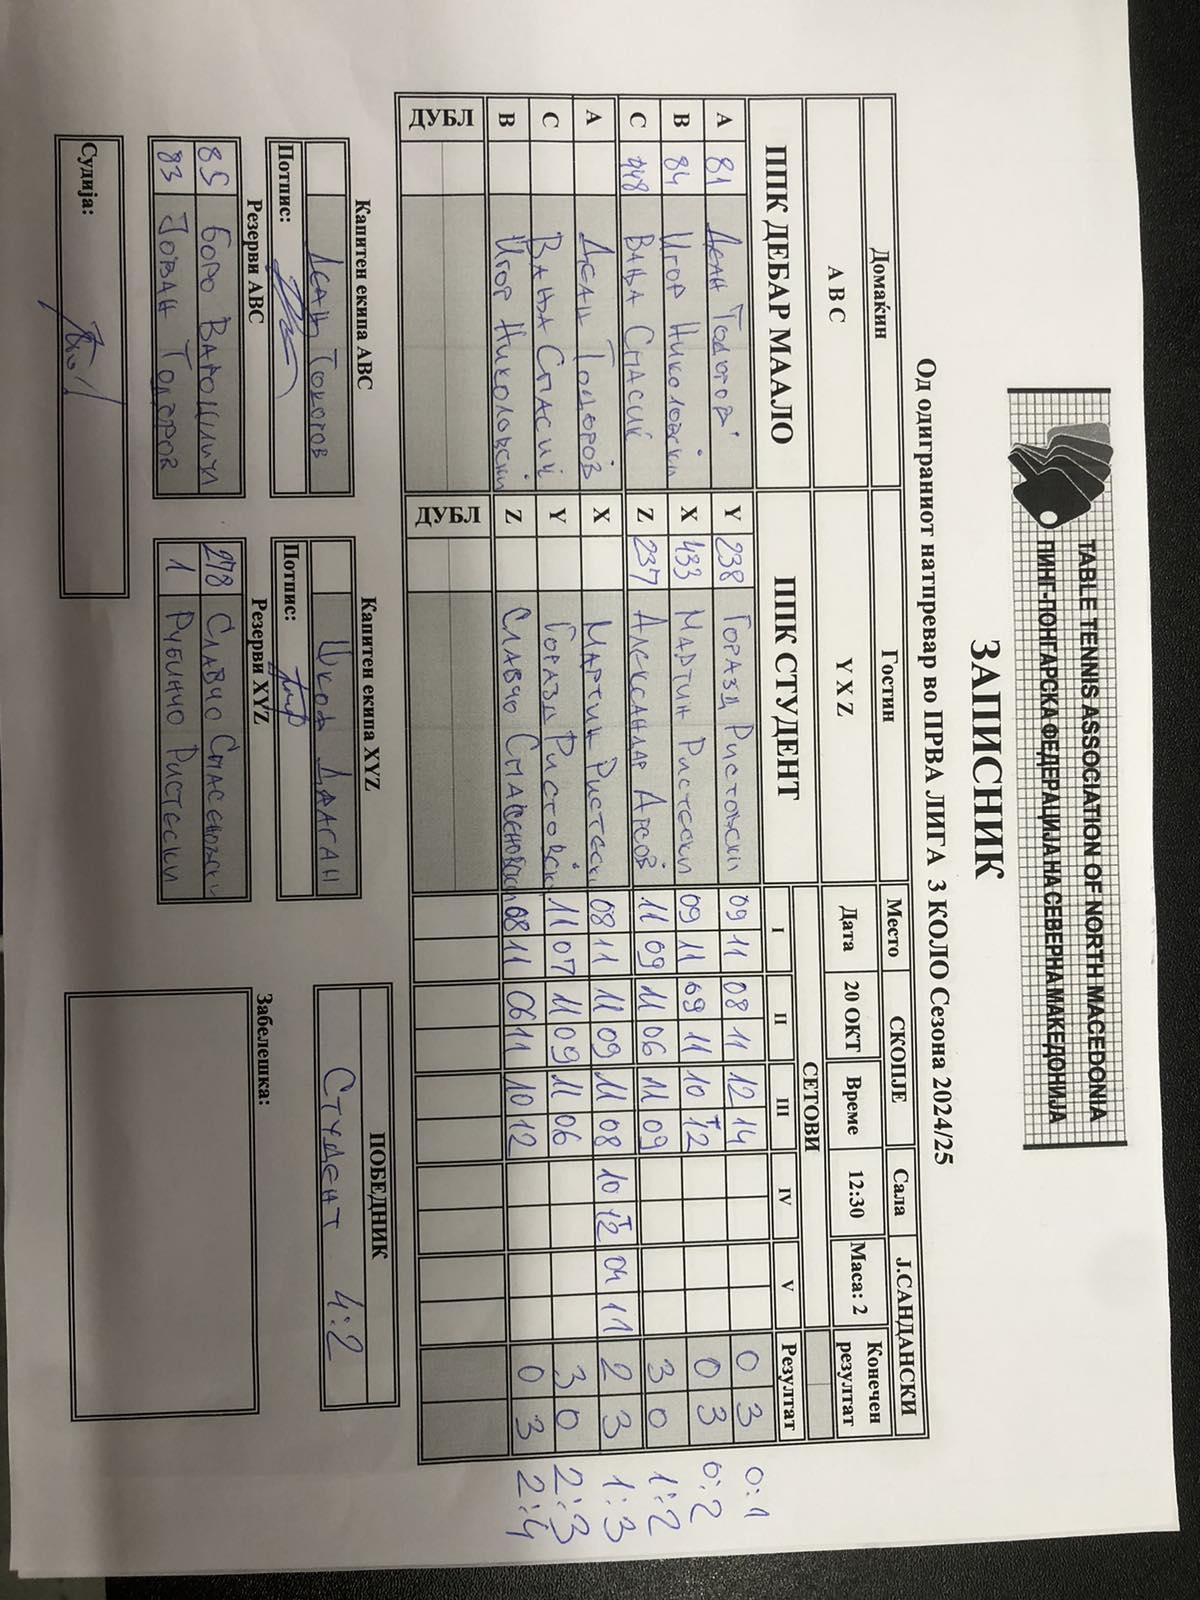 TABLE TENNIS ASSOCIATION OF NORTH MACEDONIA
ПИНГ-ПОНГАРСКА ФЕДЕРАЦИЈА НА СЕВЕРНА МАКЕДОНИЈА
ЗАПИСНИК
Од одиграниот натпревар во ПРВА ЛИГА 3 КОЛО Сезона 2024/25
Домаќин Гостин Место СКОПЈЕ Сала Ј.САНДАНСКИ
A B C Y X Z Дата 20 ОКТ Време 12:30 Маса: 2 Конечен резултат
ППК ДЕБАР МААЛО ППК СТУДЕНТ СЕТОВИ
I II III IV V Резултат
A 81 ДЕАН ТОДОРОВ Y 238 ГОРАЗД РИСТОВСКИ 09 11 08 11 12 14 0 3 0:1
B 84 ИГОР НИКОЛОВСКИ X 433 МАРТИН РИСТЕСКИ 09 11 09 11 10 12 0 3 0:2
C 448 ВАЊА СПАСИЌ Z 237 АЛЕКСАНДАР АРСОВ 11 09 11 06 11 09 3 0 1:2
A ДЕАН ТОДОРОВ X МАРТИН РИСТЕСКИ 08 11 11 09 11 08 10 12 04 11 2 3 1:3
C ВАЊА СПАСИЌ Y ГОРАЗД РИСТОВСКИ 11 07 11 09 11 06 3 0 2:3
B ИГОР НИКОЛОВСКИ Z СЛАВЧО СПАСЕНОВСКИ 08 11 06 11 10 12 0 3 2:4
ДУБЛ ДУБЛ
Капитен екипа ABC Капитен екипа XYZ ПОБЕДНИК
ДЕАН ТОДОРОВ ДРАГАН СТУДЕНТ 4:2
Потпис: Потпис:
Резерви ABC Резерви XYZ Забелешка:
85 БОРО ВАРОШЛИЧИ 278 СЛАВЧО СПАСЕНОВСКИ
83 ЈОВАН ТОДОРОВ 1 РУБИНЧО РИСТЕСКИ
Судија: